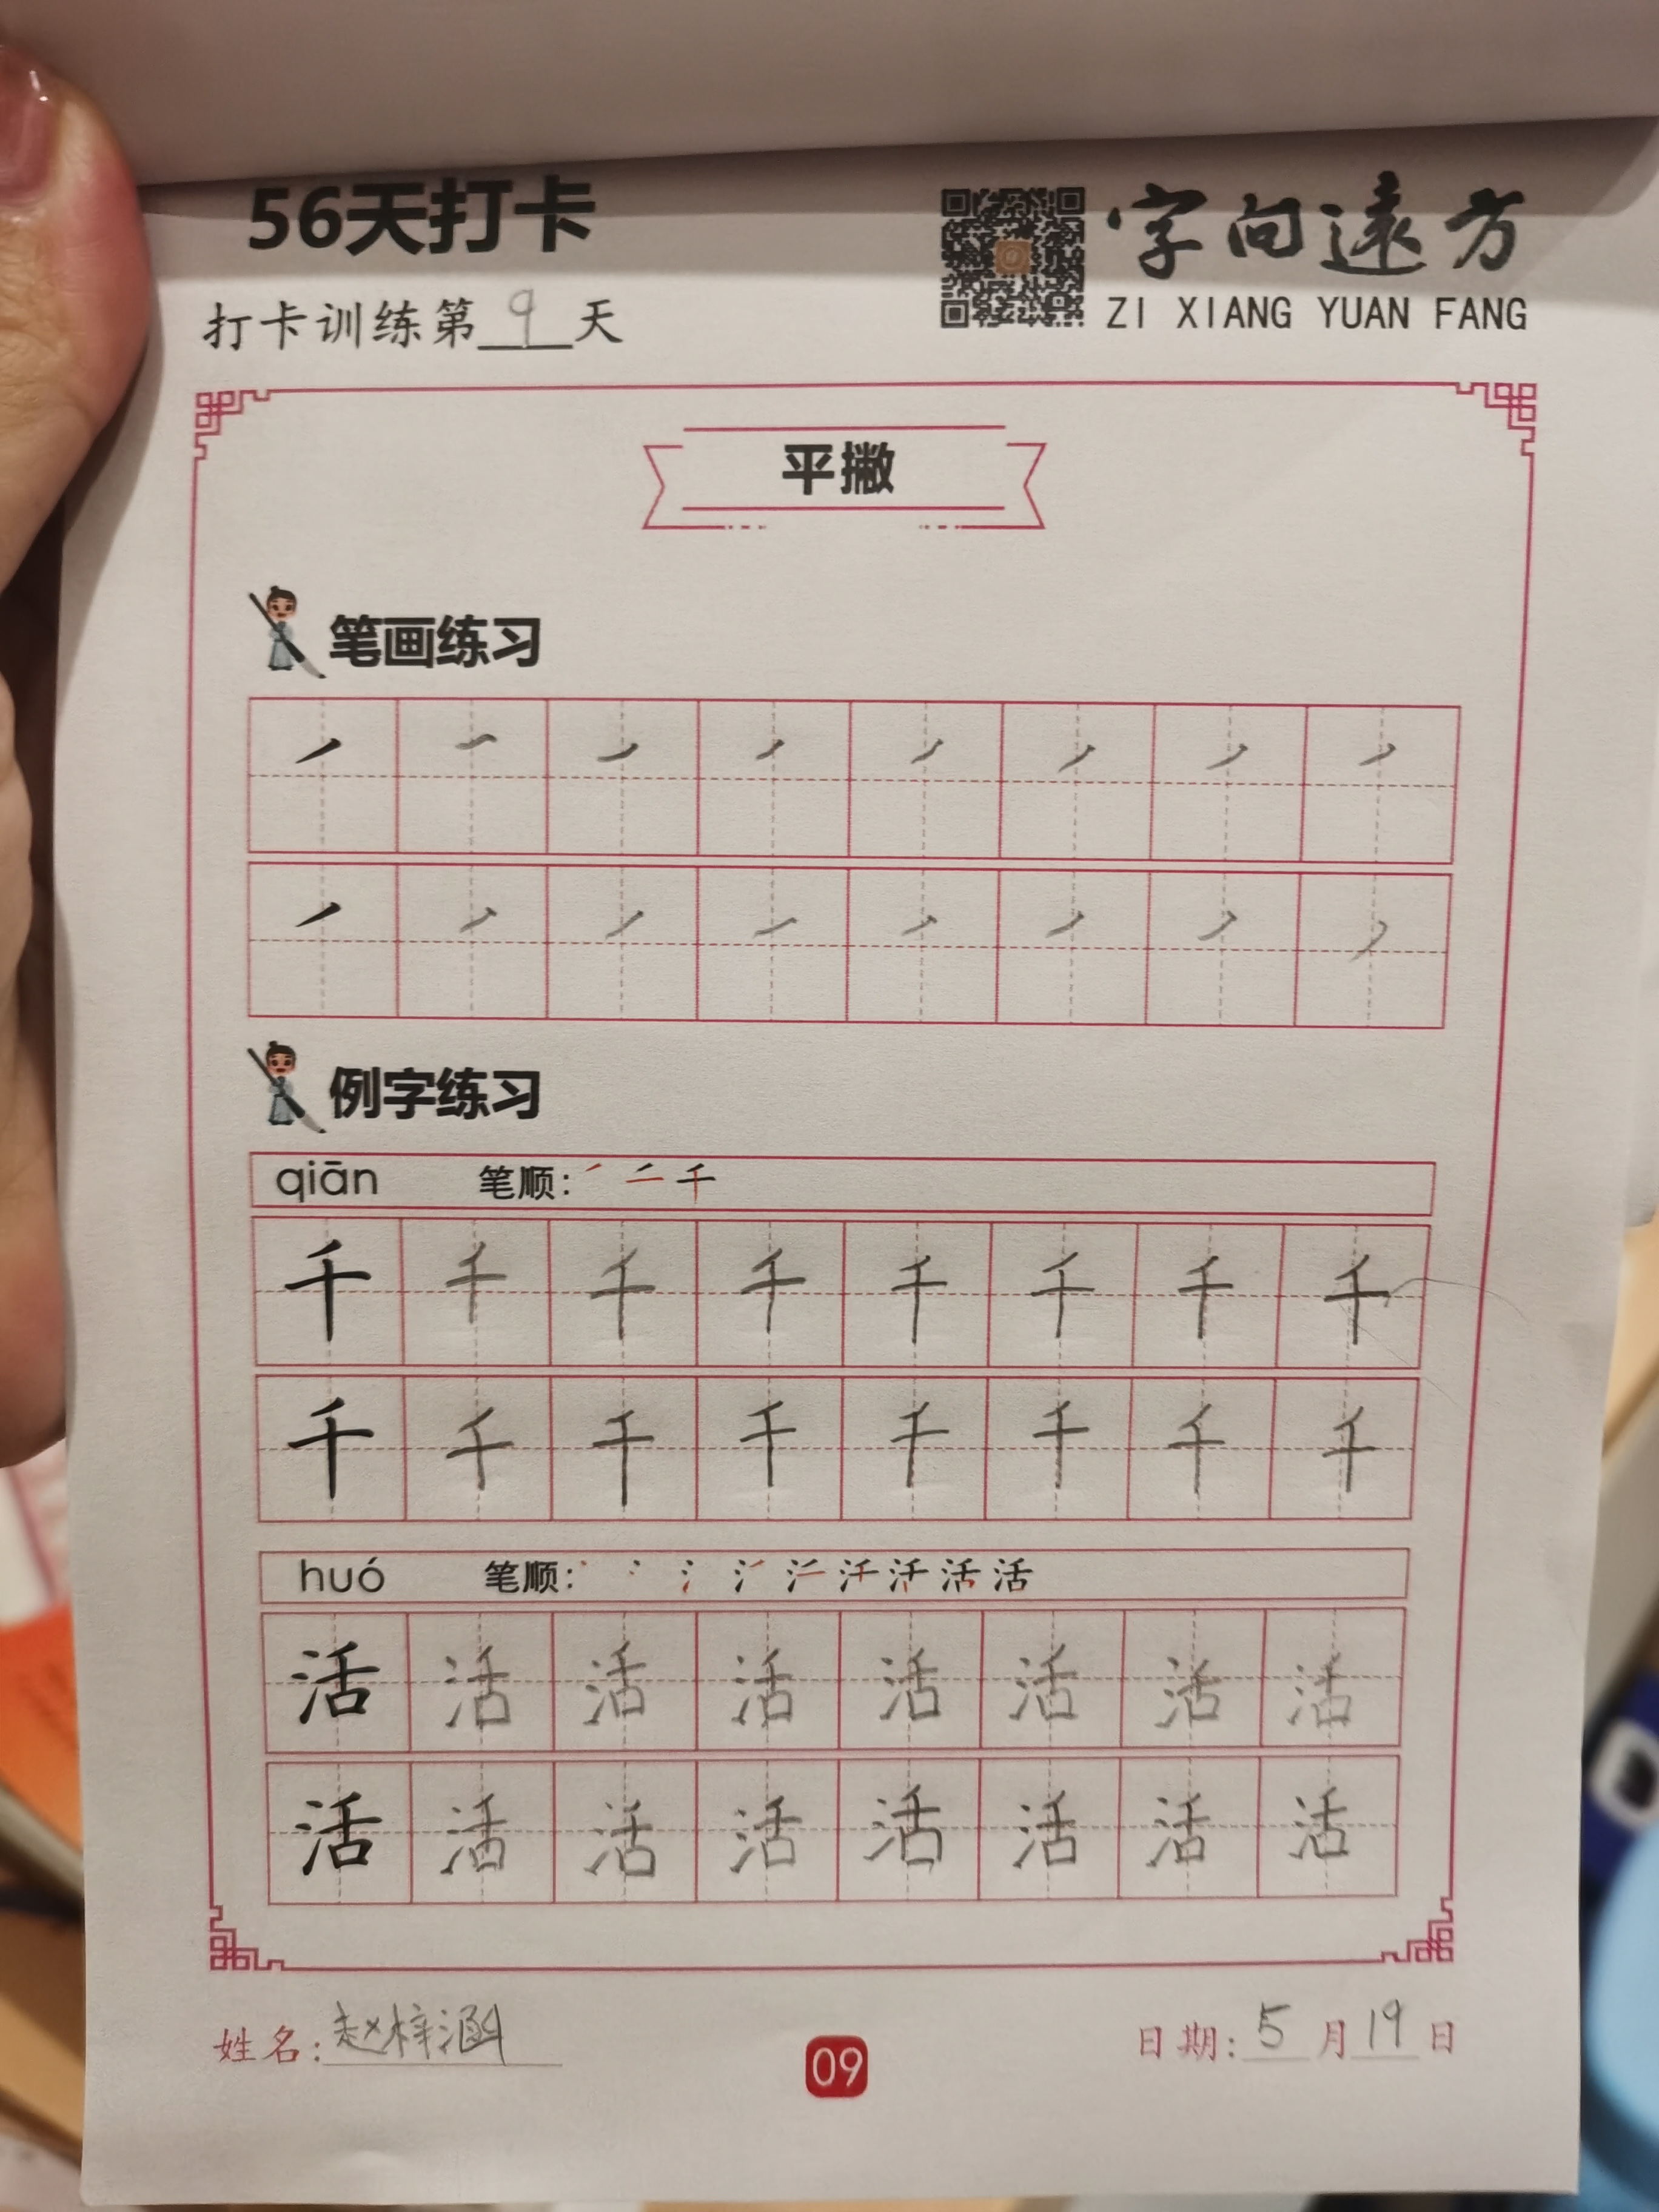 56天打卡
字向遠方
打卡训练第9天
ZI XIANG YUAN FANG
平撇
笔画练习
例字练习
qiān 笔顺: 千
千 千 千 千 千 千 千 千
千 千 千 千 千 千 千 千
huó 笔顺: 活
活 活 活 活 活 活 活 活
活 活 活 活 活 活 活 活
姓名: 赵梓涵 09 日期: 5月19日